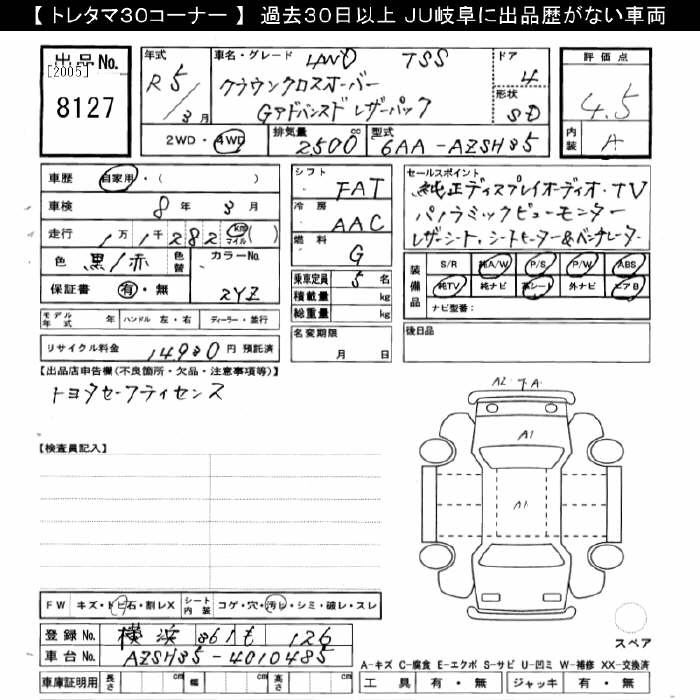 【 トレタマ30コーナー 】 過去30日以上 JU岐阜に出品歴がない車両
出品No.
[2005]
8127
年式
R5/3月
車名・グレード 4WD TSS
クラウンクロスオーバー
Gアドバンスド レザーパック
ドア
4
形状
SD
評価点
4.5
内装 A
2WD・4WD
排気量 2500 cc
型式 6AA-AZSH35
車歴 自家用・( )
車検 8年 3月
走行 1万1千282 km マイル ( )
色 黒/赤 色替
カラーNo. 2YZ
保証書 有・無
シフト FAT
冷房 AAC
燃料 G
乗車定員 5名
積載量 kg
総重量 kg
セールスポイント
純正ディスプレイオーディオ・TV
パノラミックビューモニター
レザーシート、シートヒーター&ベンチレーター
装備品
S/R 純A/W P/S P/W ABS
純TV 純ナビ 革シート 外ナビ エアB
ナビ型番：
モデル年式 年 ハンドル 左・右 ディーラー・並行
名変期限 月 日
後日品
リサイクル料金 14930円 預託済
【出品店申告欄(不良箇所・欠品・注意事項等)】
トヨタセーフティセンス
A2 テA
A1
A1
【検査員記入】
FW キズ・トビ石・割レX
シート内装 コゲ・穴・汚レ・シミ・破レ・スレ
登録No. 横浜 361 も 126
車台No. AZSH35-4010485
車庫証明用 長さ cm 幅 cm 高さ cm
スペア
A-キズ C-腐食 E-エクボ S-サビ U-凹ミ W-補修 XX-交換済
工具 有・無 ジャッキ 有・無